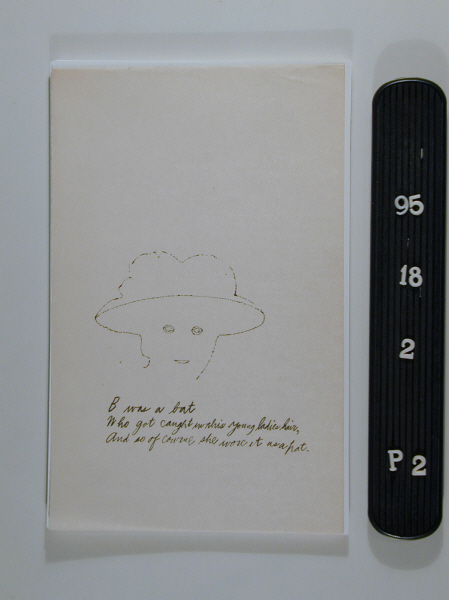 B was a bat
Who got caught in this young ladies hair,
And so of course she wore it as a hat.
95
18
2
P 2